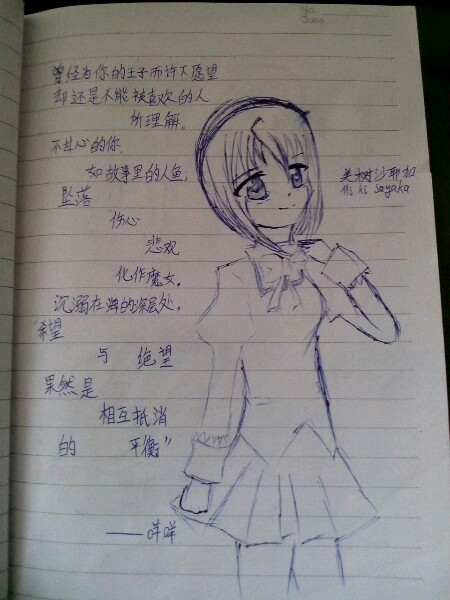 No.
Date
曾经为你的王子而许下愿望
却还是不能被喜欢的人
所理解。
不甘心的你,
如故事里的人鱼,
坠落
伤心
悲观
化作魔女。
沉溺在海的深层处,
"希望
与 绝望
果然是
相互抵消
的 平衡"
——咩咩
美树沙耶加
Mi ki sayaka